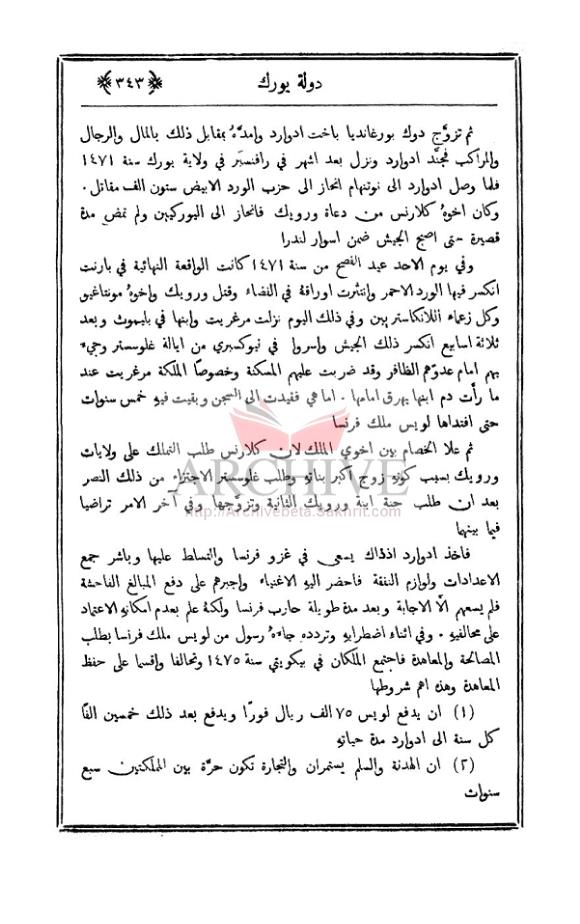 دولة يورك
﴿٣٤٣﴾
ثم تزوَّج دوك بورغانديا باخت ادوارد وامدَّهُ بمقابل ذلك بالمال والرجال
والمراكب فجنَّد ادوارد ونزل بعد اشهر في رافنسبَر في ولاية يورك سنة ١٤٧١
فلما وصل ادوارد الى نوتنهام انحاز الى حزب الورد الابيض ستون الف مقاتل .
وكان اخوهُ كلارنس من دعاة ورويك فانحاز الى اليوركيين ولم تمض مدة
قصيرة حتى اصبح الجيش ضمن اسوار لندرا
وفي يوم الاحد عيد الفصح من سنة ١٤٧١ كانت الواقعة النهائية في بارنت
انكسر فيها الورد الاحمر وانتثرت اوراقهُ في الفضاء وقتل ورويك واخوهُ مونتاغيو
وكل زعماء اللانكاستريين وفي ذلك اليوم نزلت مرغريت وابنها في بليموث وبعد
ثلاثة اسابيع انكسر ذلك الجيش واسروا في تيوكسبري من ايالة غلوسستر وجيء
بهم امام عدوّهم الظافر وقد ضربت عليهم المسكنة وخصوصًا الملكة مرغريت عند
ما رأت دم ابنها يهرق امامها . اما هي فقيدت الى السجن وبقيت فيهِ خمس سنوات
حتى افتداها لويس ملك فرنسا
ثم علا الخصام بين اخوي الملك لان كلارنس طلب التملك على ولايات
ورويك بسبب كونهِ زوج اكبر بناتهِ وطلب غلوسستر الاجتزاء من ذلك النصر
بعد ان طلب حنة ابنة ورويك الثانية وتزوَّجها وفي آخر الامر تراضيا
فيما بينهما
فاخذ ادوارد اذذاك يسعى في غزو فرنسا والتسلط عليها وباشر جمع
الاعدادات ولوازم النفقة فاحضر اليهِ الاغنياء واجبرهم على دفع المبالغ الفاحشة
فلم يسعهم الَّا الاجابة وبعد مدة طويلة حارب فرنسا ولكنهُ علم بعدم امكانهِ الاعتماد
على محالفيهِ . وفي اثناء اضطرابهِ وتردده جاءهُ رسول من لويس ملك فرنسا بطلب
المصالحة والمعاهدة فاجتمع الملكان في بيكويني سنة ١٤٧٥ وتحالفا واقسما على حفظ
المعاهدة وهذه اهم شروطها
(١) ان يدفع لويس ٧٥ الف ريال فورًا ويدفع بعد ذلك خمسين الفًا
كل سنة الى ادوارد مدة حياتهِ
(٢) ان الهدنة والسلم يستمران والتجارة تكون حرَّة بين المملكتين سبع
سنوات
ARCHIVE
http://Archivebeta.Sakhrit.com